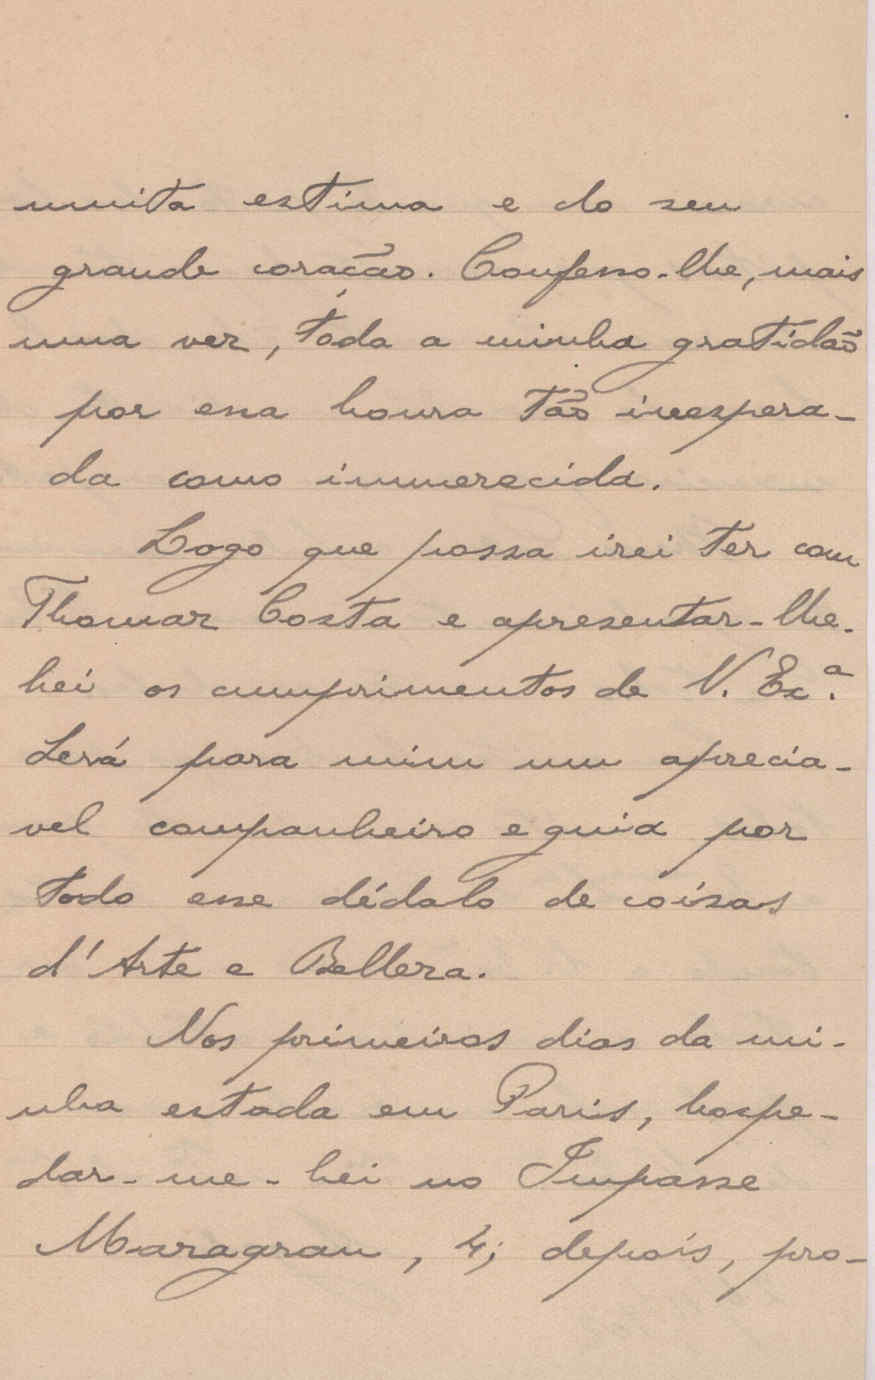 muita estima e do seu
grande coração. Confesso-lhe, mais
uma vez, toda a minha gratidão
por essa honra tão inespera-
da como immerecida.
Logo que possa irei ter com
Thomaz Costa e apresentar-lhe-
hei os cumprimentos de V. Exª.
Será para mim um aprecia-
vel companheiro e guia por
todo esse dédalo de coisas
d'Arte e Belleza.
Nos primeiros dias da mi-
nha estada em Paris, hospe-
dar-me-hei no Impasse
Mazagran, 4; depois, pro-